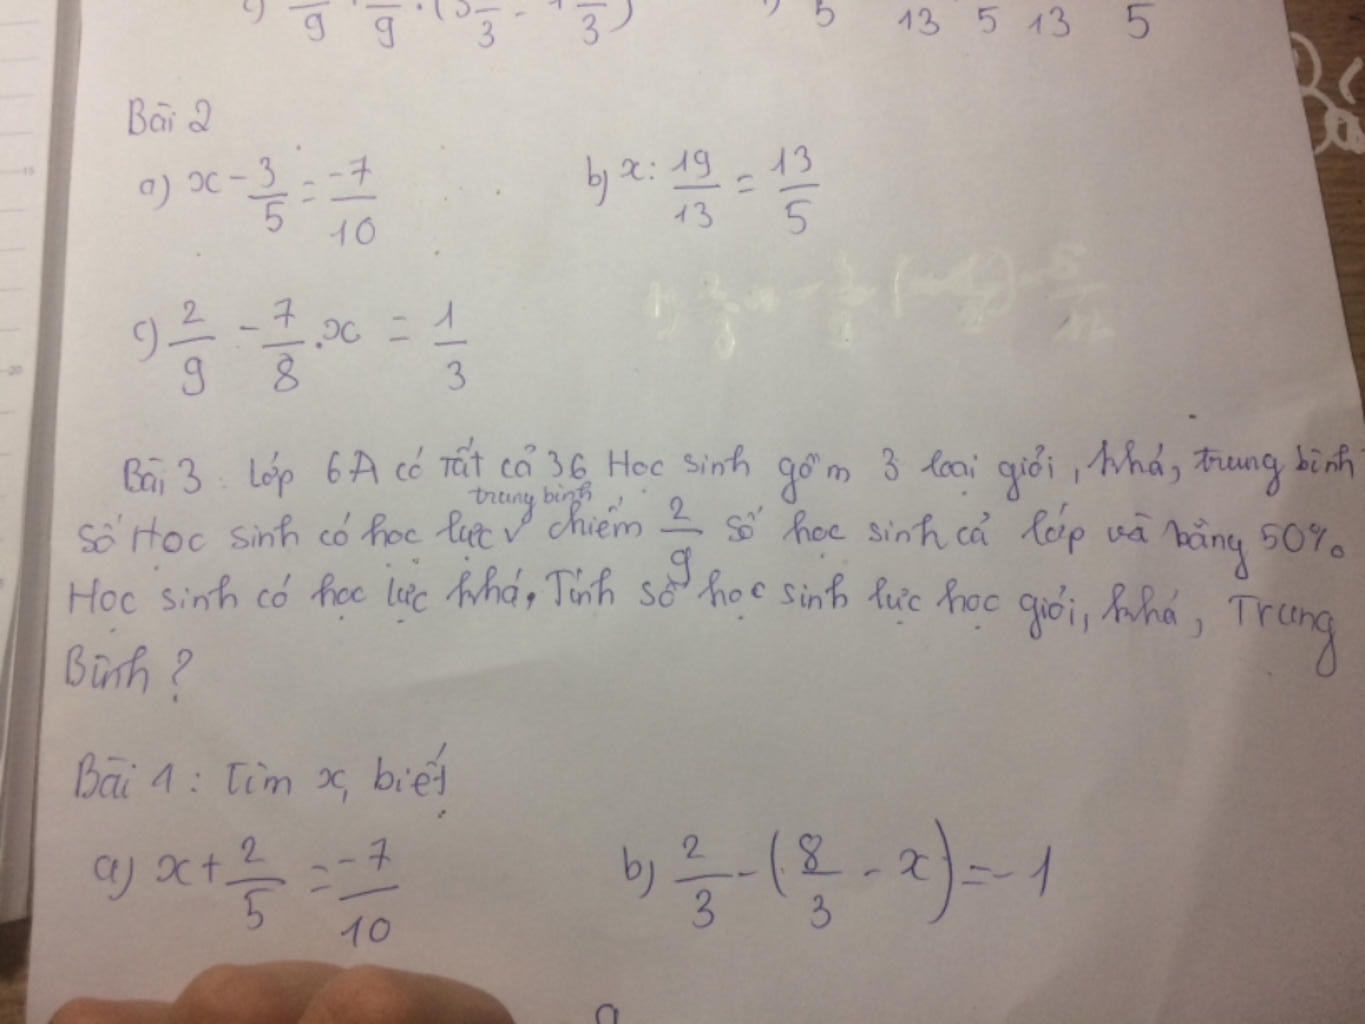 9 9 · (3 3 - 3 ) 5 13 5 13 5
Bài 2
a) x - 3/5 = -7/10 b) x : 19/13 = 13/5
c) 2/9 - 7/8 . x = 1/3
Bài 3 : Lớp 6A có Tất cả 36 Học sinh gồm 3 loại giỏi, khá, trung bình
Số Học sinh có học lực trung bình chiếm 2/9 số học sinh cả lớp và bằng 50%
Học sinh có học lực khá. Tính số học sinh lực học giỏi, khá, Trung
Bình ?
Bài 1 : Tìm x, biết
a) x + 2/5 = -7/10 b) 2/3 - (8/3 - x) = -1